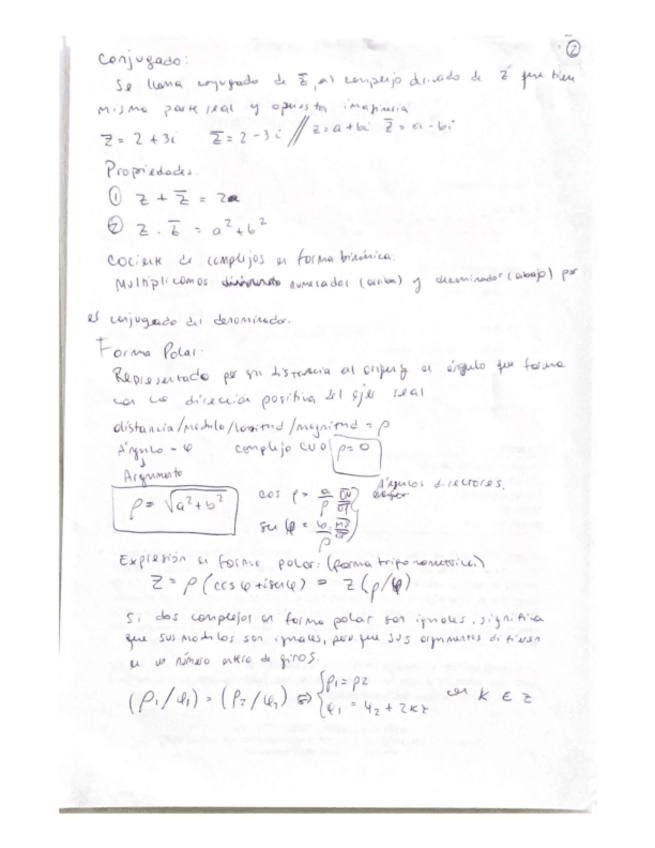 ②
Conjugado:
Se llama conjugado de z̅, al complejo derivado de z que tien
misma parte real y opuesta imaginaria
z = 2 + 3i z̅ = 2 - 3i // z = a + bi z̅ = a - bi
Propiedades.
① z + z̅ = 2a
② z · z̅ = a² + b²
Cociente de complejos en forma binómica.
Multiplicamos numerados (arriba) y denominador (abajo) por
el conjugado del denominador.
Forma Polar:
Representado por su distancia al origen y el ángulo que forma
con la dirección positiva del ejes real
distancia/modulo/longitud/magnitud = ρ
Ángulo = φ complejo cuo ρ = 0
↓
Argumento
ρ = √a² + b²
cos ρ = a/ρ
Ángulos directores.
sen φ = b/ρ
Expresión en forma polar: (forma trigonometrica)
z = ρ (cos φ + i sen φ) = z (ρ/φ)
Si dos complejos en forma polar son iguales, significa
que sus modulos son iguales, pero que sus argumentos difieren
en un número entero de giros.
(ρ₁/φ₁) = (ρ₂/φ₂) ⇔ { ρ₁ = ρ₂
φ₁ = φ₂ + 2kπ con k ∈ z